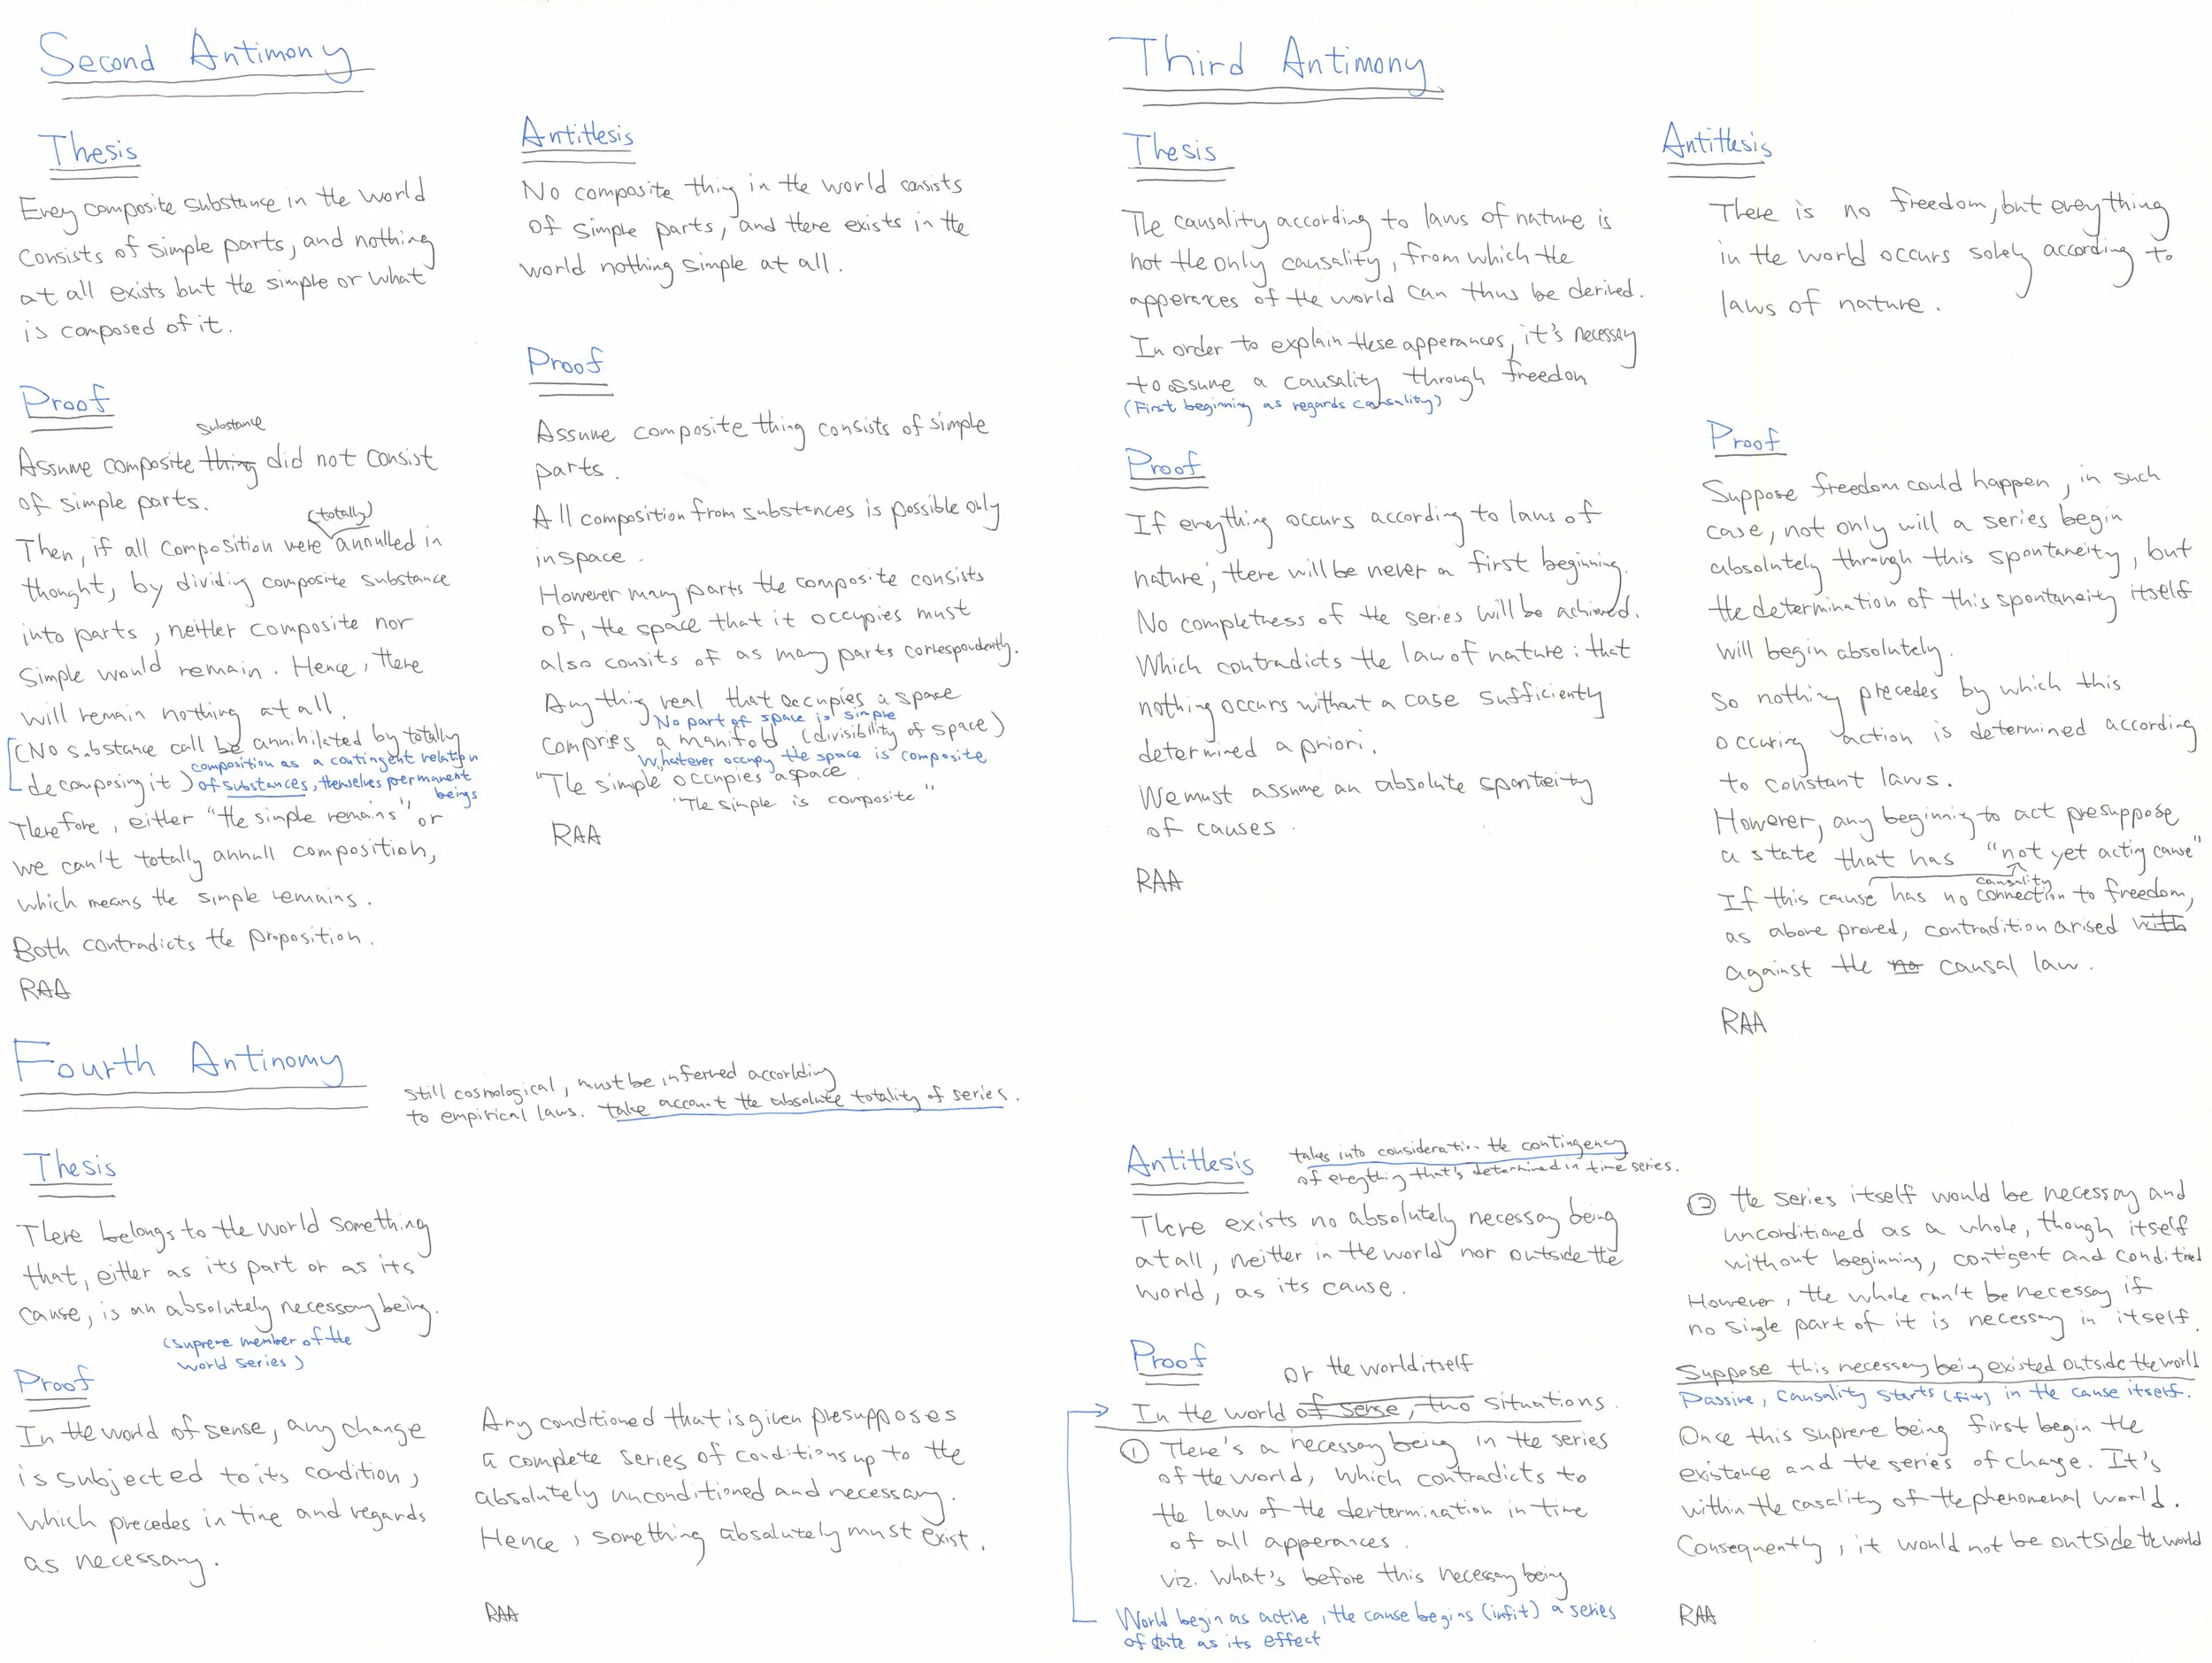 Second Antimony
Thesis
Every composite substance in the world
consists of simple parts, and nothing
at all exists but the simple or what
is composed of it.
Proof
substance
Assume composite thing did not consist
of simple parts.
(totally)
Then, if all composition were annulled in
thought, by dividing composite substance
into parts, neither composite nor
simple would remain. Hence, there
will remain nothing at all.
(No substance call be annihilated by totally
composition as a contingent relation
decomposing it) of substances, themselves permanent
beings
Therefore, either "the simple remains" or
we can't totally annull composition,
which means the simple remains.
Both contradicts the proposition.
RAA
Antithesis
No composite thing in the world consists
of simple parts, and there exists in the
world nothing simple at all.
Proof
Assume composite thing consists of simple
parts.
All composition from substances is possible only
in space.
However many parts the composite consists
of, the space that it occupies must
also consits of as many parts correspondently.
Any thing real that occupies a space
No part of space is simple
compries a manifold (divisibility of space)
Whatever occupy the space is composite
"The simple occupies a space
"The simple is composite"
RAA
Third Antimony
Thesis
The causality according to laws of nature is
not the only causality, from which the
apperances of the world can thus be derived.
In order to explain these apperances, it's necessary
to assume a causality through freedon
(First beginning as regards causality)
Proof
If erything occurs according to laws of
nature, there will be never a first beginning.
No completness of the series will be achieved.
Which contradicts the law of nature: that
nothing occurs without a case sufficienty
determined a priori.
We must assume an absolute sponteity
of causes.
RAA
Antithesis
There is no freedom, but everything
in the world occurs solely according to
laws of nature.
Proof
Suppose freedom could happen, in such
case, not only will a series begin
absolutely through this spontaneity, but
the determination of this spontaneity itself
will begin absolutely.
So nothing precedes by which this
occuring action is determined according
to constant laws.
However, any beginnig to act presuppose
a state that has "not yet actig cause"
causality
If this cause has no connection to freedom,
as above proved, contradition arised with
against the no causal law.
RAA
Fourth Antinomy
still cosmological, must be inferred accorlding
to empirical laws. take account the absolute totality of series.
Thesis
There belongs to the world something
that, either as its part or as its
cause, is an absolutely necessary being.
(supreme member of the
world series)
Proof
In the world of sense, any change
is subjected to its condition,
which precedes in time and regards
as necessary.
Any conditioned that is given presupposes
a complete series of conditions up to the
absolutely unconditioned and necessary.
Hence, something absolutely must exist.
RAA
Antithesis
takes into consideration the contingency
of erything that's determined in time series.
There exists no absolutely necessay being
at all, neither in the world nor outside the
world, as its cause.
Proof
or the world itself
In the world of sense, two situations.
① There's a necessay being in the series
of the world, which contradicts to
the law of the dertermination in time
of all apperances.
viz. What's before this necessay being
World begin as active, the cause begins (infit) a series
of state as its effect
② the series itself would be necessay and
unconditioned as a whole, though itself
without beginning, contigent and conditined
However, the whole can't be necessay if
no single part of it is necessay in itself.
Suppose this necessay being existed outside the world
Passive, causality starts (fit) in the cause itself.
Once this supreme being first begin the
existence and the series of change. It's
within the casality of the phenomenal world.
Consequently, it would not be outside the world
RAA